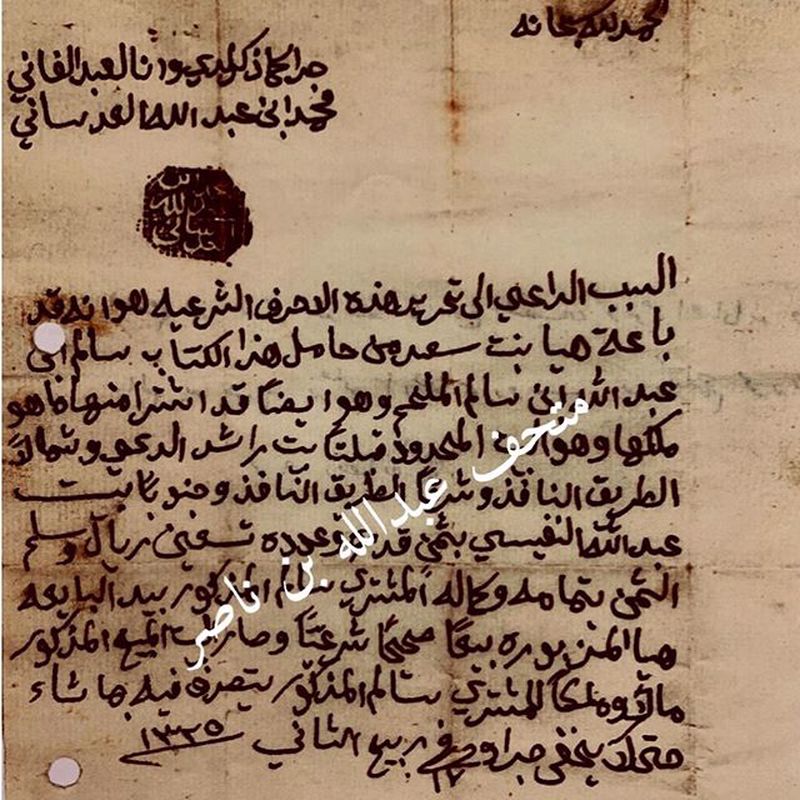 الحمد لله سبحانه
جرا كما ذكر لدي وانا العبد الفاني
محمد ابن عبد الله العدساني
السبب الداعي الى تحرير هذه الاحرف الشرعيه هو انه قد
باعة هيا بنت سعد من حامل هذا الكتاب سالم ابن
عبد الله ابن سالم الملحم وهو ايضا قد اشترا منها ما هو
ملكها وهو البيت المحدود قبلتا بيت راشد الدعي وشمالا
الطريق النافذ وشرقا الطريق النافذ وجنوبا بيت
عبد الله النفيسي بثمن قدره وعدده تسعين ريال وسلم
الثمن بتمامه وكماله المشتري سالم المذكور بيد البايعه
هيا المزبوره بيعا صحيحا شرعيا وصار البيت المبيع المذكور
مالا وملكا للمشتري سالم المذكور يتصرف فيه بما شاء
حتى لا يخفى جرا وحرر في ١٧ ربيع الثاني ١٣٢٥
متحف عبدالله بن ناصر